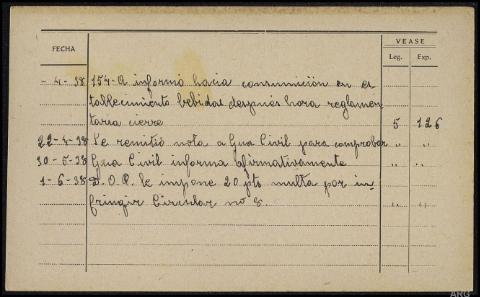 FECHA
VEASE
Leg. Exp.
- 4 - 38 154-A informó hacia consumición en es
tablecimiento bebidas después hora reglamen
taria cierre 5 126
22-4-38 Se remitió nota a Gua Civil para comprobar " "
30-5-38 Gua Civil informa afirmativamente " "
1-6-38 D.O.P. le impone 20 pts multa por in-
fringir Circular nº 8. " "